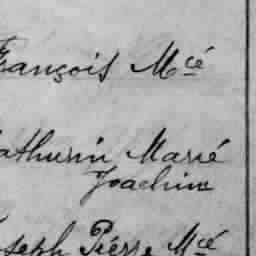 François Mcé
Mathurin Marié
Joachim
Joseph Pierre Mcé